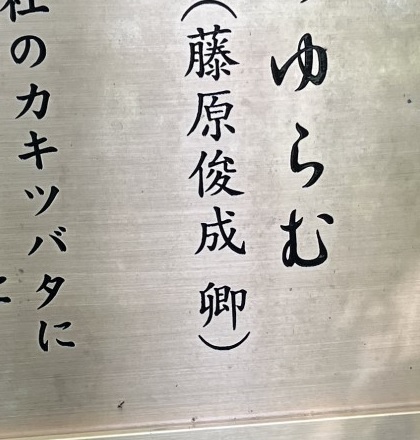 ゆらむ
（藤原俊成 卿）
社のカキツバタに